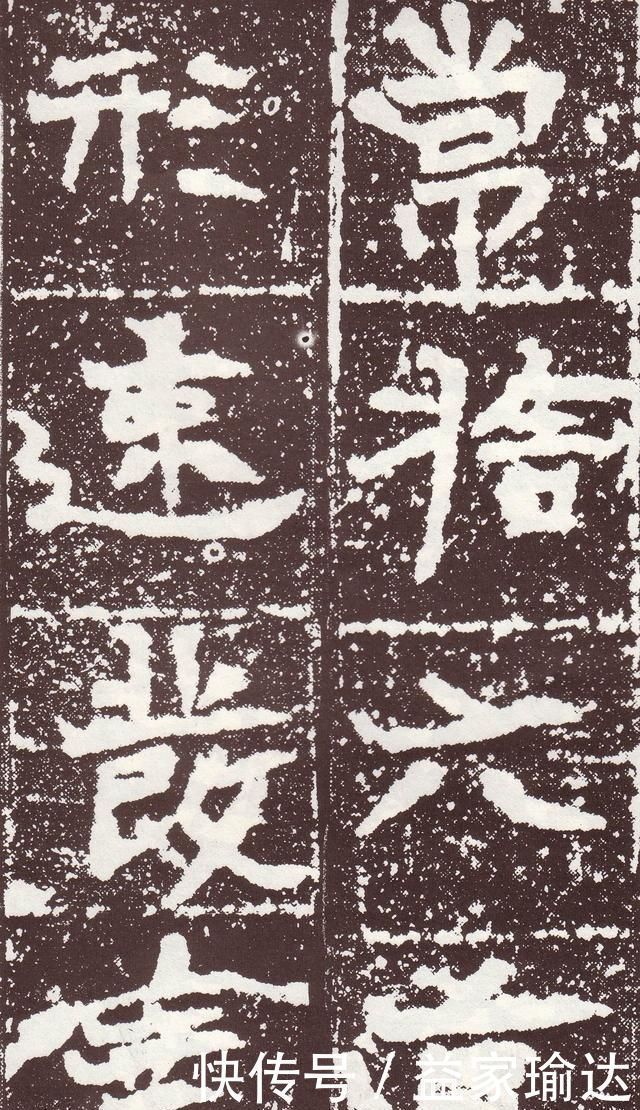 常捨六
形速嚴
快传号 / 益家瑜达